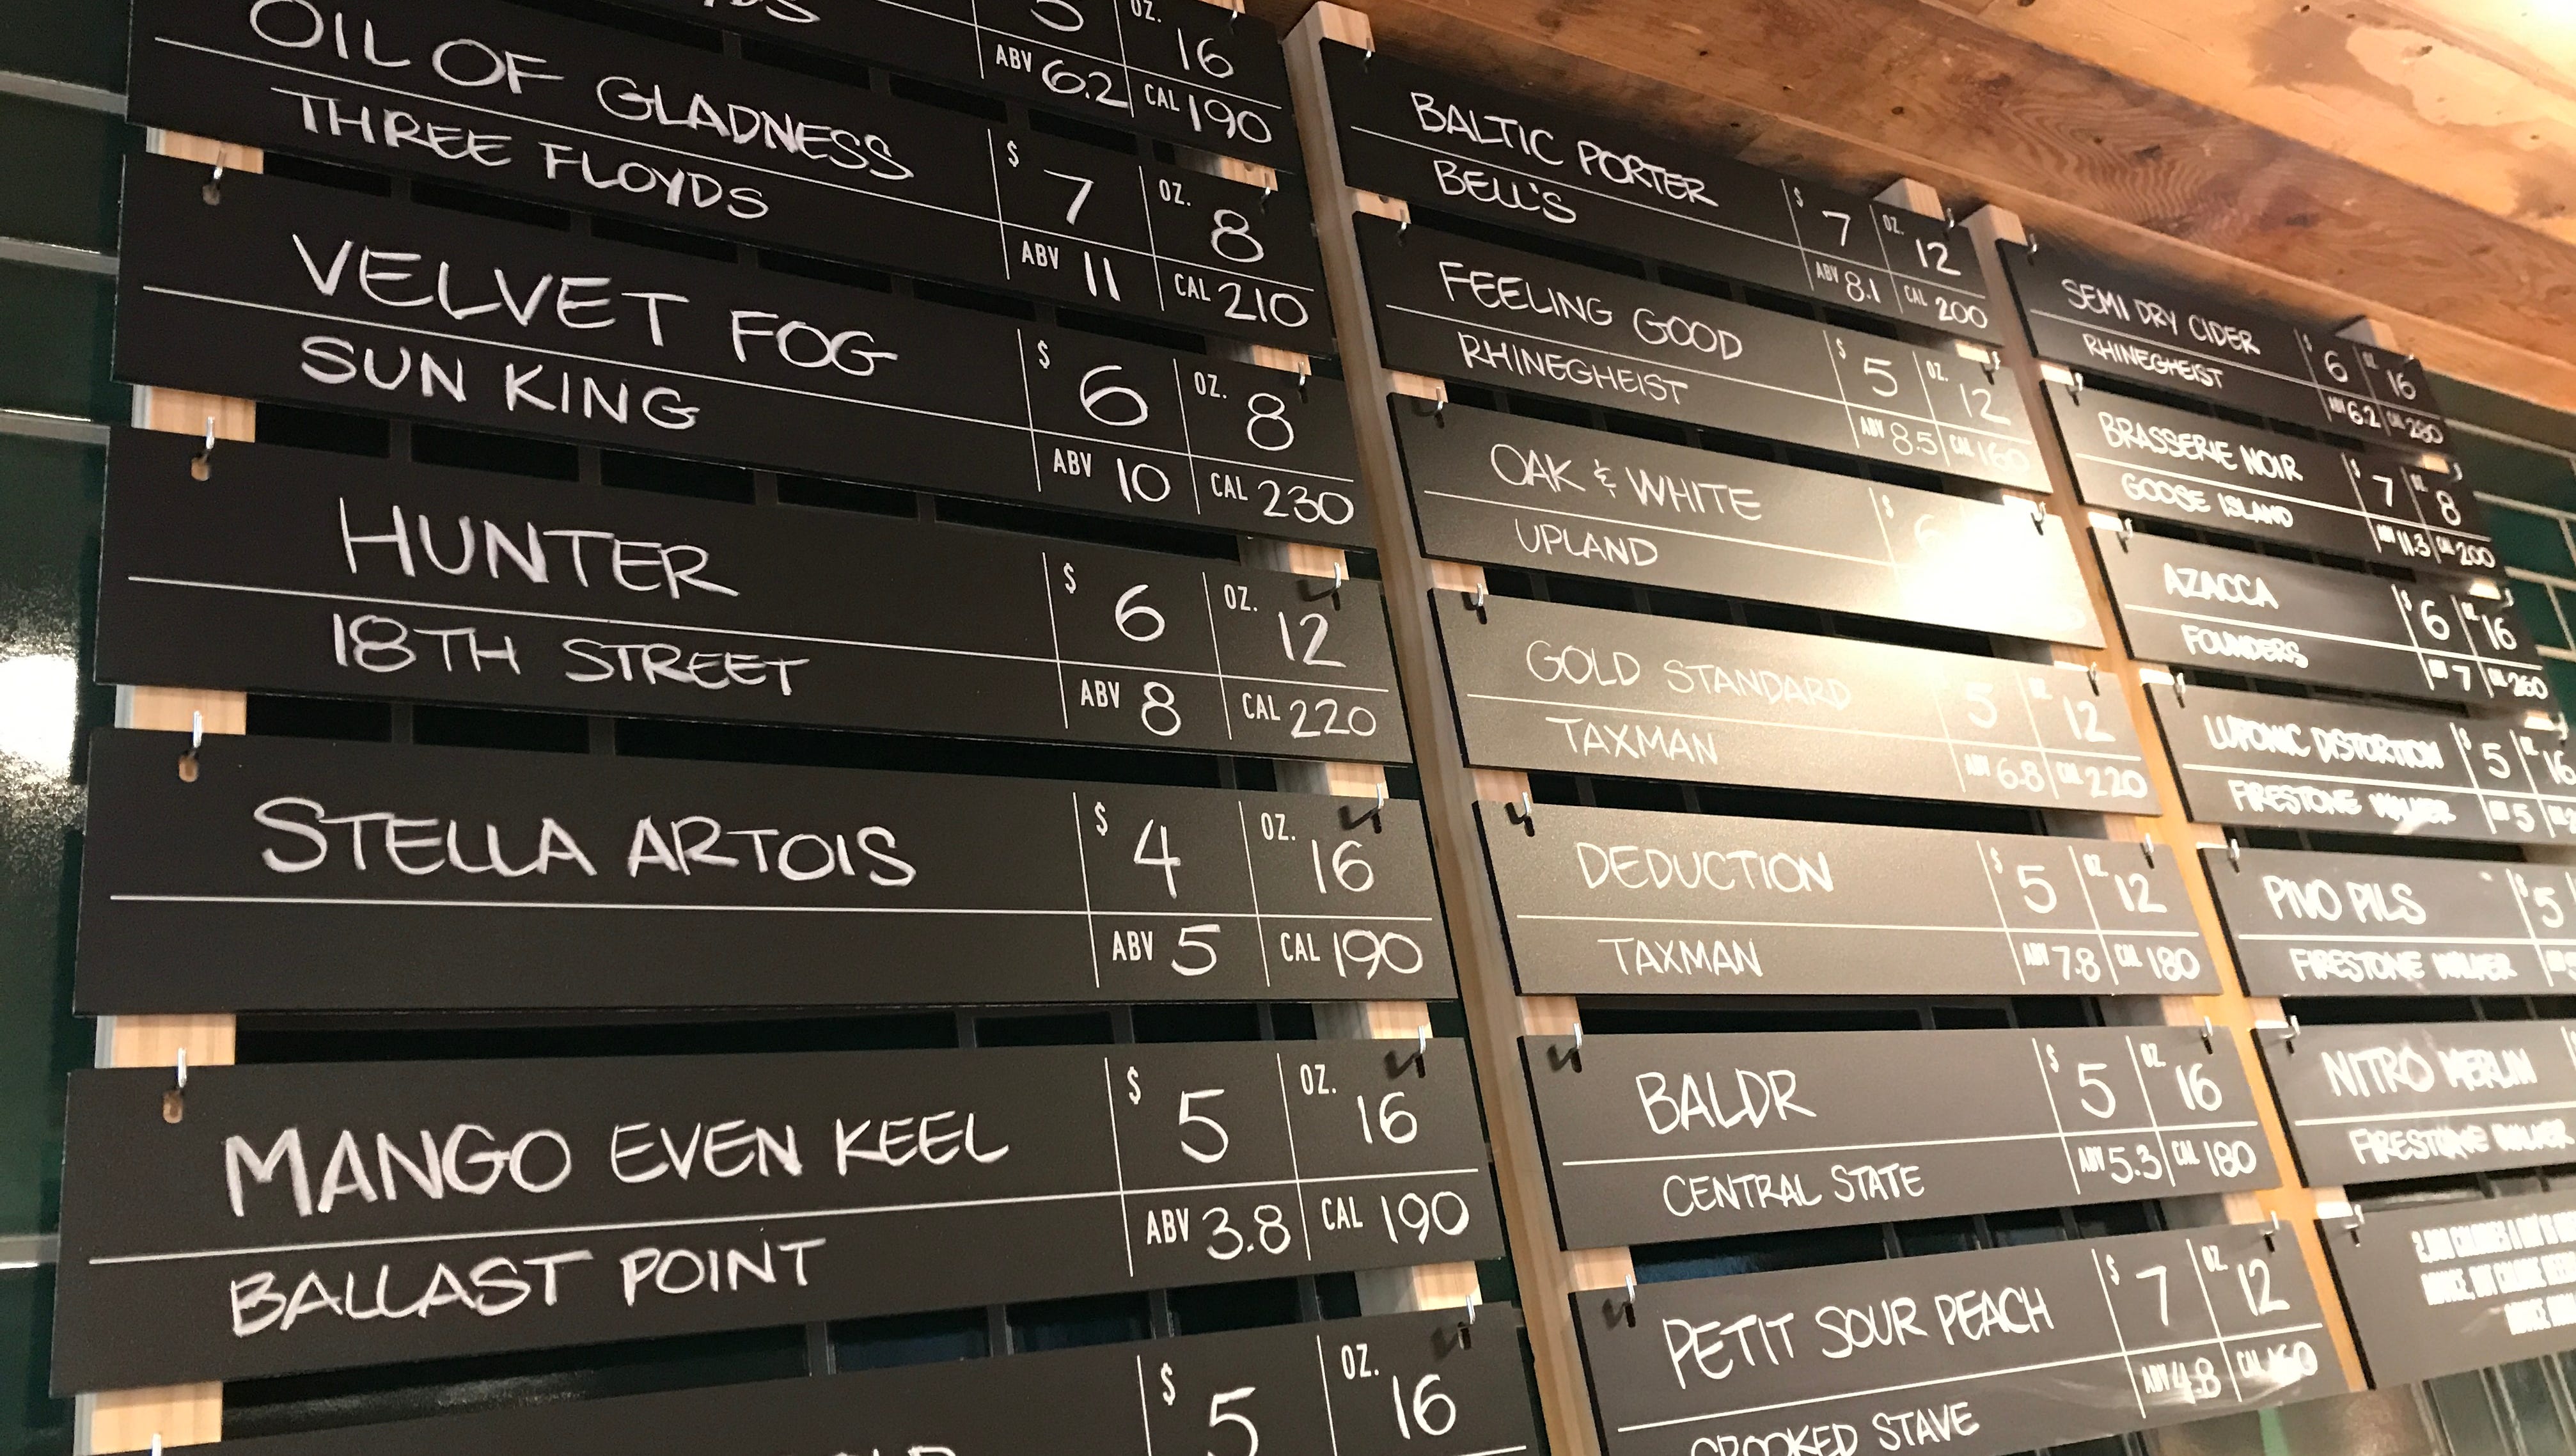 $ 5 OZ. 16
ABV 6.2 CAL 190
OIL OF GLADNESS $ 7 OZ. 8
THREE FLOYDS ABV 11 CAL 210
VELVET FOG $ 6 OZ. 8
SUN KING ABV 10 CAL 230
HUNTER $ 6 OZ. 12
18TH STREET ABV 8 CAL 220
STELLA ARTOIS $ 4 OZ. 16
ABV 5 CAL 190
MANGO EVEN KEEL $ 5 OZ. 16
BALLAST POINT ABV 3.8 CAL 190
$ 5 OZ. 16
BALTIC PORTER $ 7 OZ. 12
BELL'S ABV 8.1 CAL 200
FEELING GOOD $ 5 OZ. 12
RHINEGHEIST ABV 8.5 CAL 160
OAK & WHITE $ 6
UPLAND
GOLD STANDARD 5 OZ 12
TAXMAN ABV 6.8 CAL 220
DEDUCTION $ 5 OZ 12
TAXMAN ABV 7.8 CAL 180
BALDR $ 5 OZ 16
CENTRAL STATE ABV 5.3 CAL 180
PETIT SOUR PEACH $ 7 OZ 12
CROOKED STAVE ABV 4.8 CAL
SEMI DRY CIDER $ 6 OZ 16
RHINEGHEIST ABV 6.2 CAL
BRASSERIE NOIR $ 7 OZ 8
GOOSE ISLAND ABV 11.3 CAL 200
AZACCA $ 6 OZ 16
FOUNDERS ABV 7 CAL 260
LUPONIC DISTORTION $ 5 OZ 16
FIRESTONE WALKER ABV 5
PIVO PILS $ 5
FIRESTONE WALKER
NITRO MERLIN
FIRESTONE WALKER
2,000 CALORIES A DAY IS
ADVICE, BUT CALORIE
ADVICE